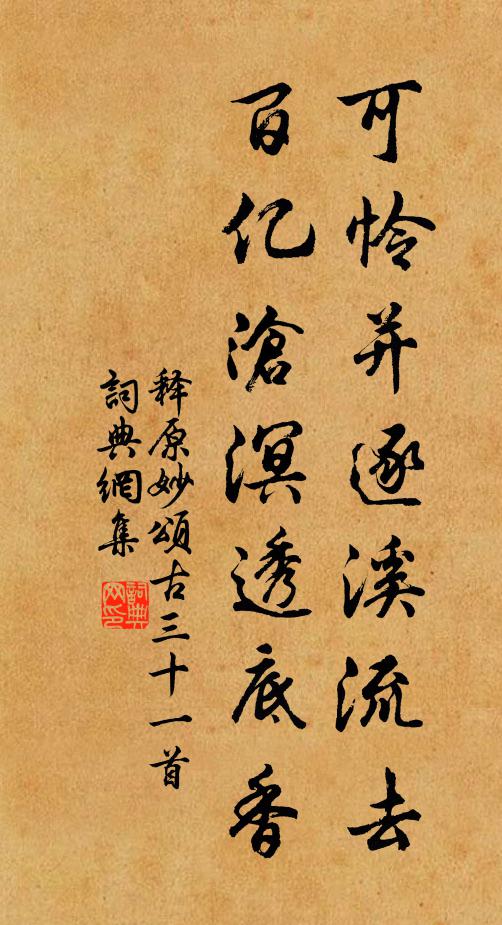 可怜并逐溪流去
百亿滄溟透底香
释原妙頌古三十一首
詞典網集
詞典
网印